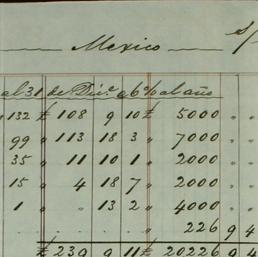 Mexico S/
al 31 de Dic.e a 6% al año
" 132 £ 108 9 10 £ 5000 " "
99 " 113 18 3 " 7000 " "
35 " 11 10 1 " 2000 " "
15 " 4 18 7 " 2000 " "
1 " " 13 2 " 4000 " "
" 226 9 4
£ 239 9 11 £ 20226 9 4